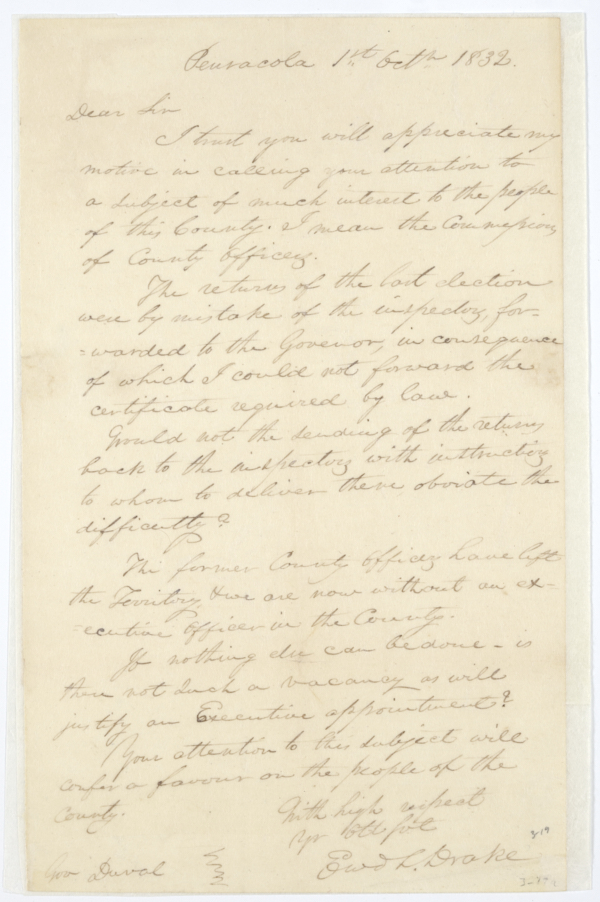 Pensacola 1st Octr 1832.
Dear Sir
I trust you will appreciate my
motive in calling your attention to
a subject of much interest to the people
of this County. I mean the Commissions
of County officers.
The returns of the last election
were by mistake of the inspectors, for=
=warded to the Govenor, in consequence
of which I could not forward the
certificate required by law.
Would not the sending of the returns
back to the inspectors with instructions
to whom to deliver them obviate the
difficulty?
The former County officers have left
the Territory & we are now without an ex-
-ecutive officer in the County.
If nothing else can be done - is
there not such a vacancy as will
justify an Executive appointment?
Your attention to this subject will
confer a favour on the people of the
County.
With high respect
Yr Obt Svt
Ewd L. Drake
Gov Duval
3-19